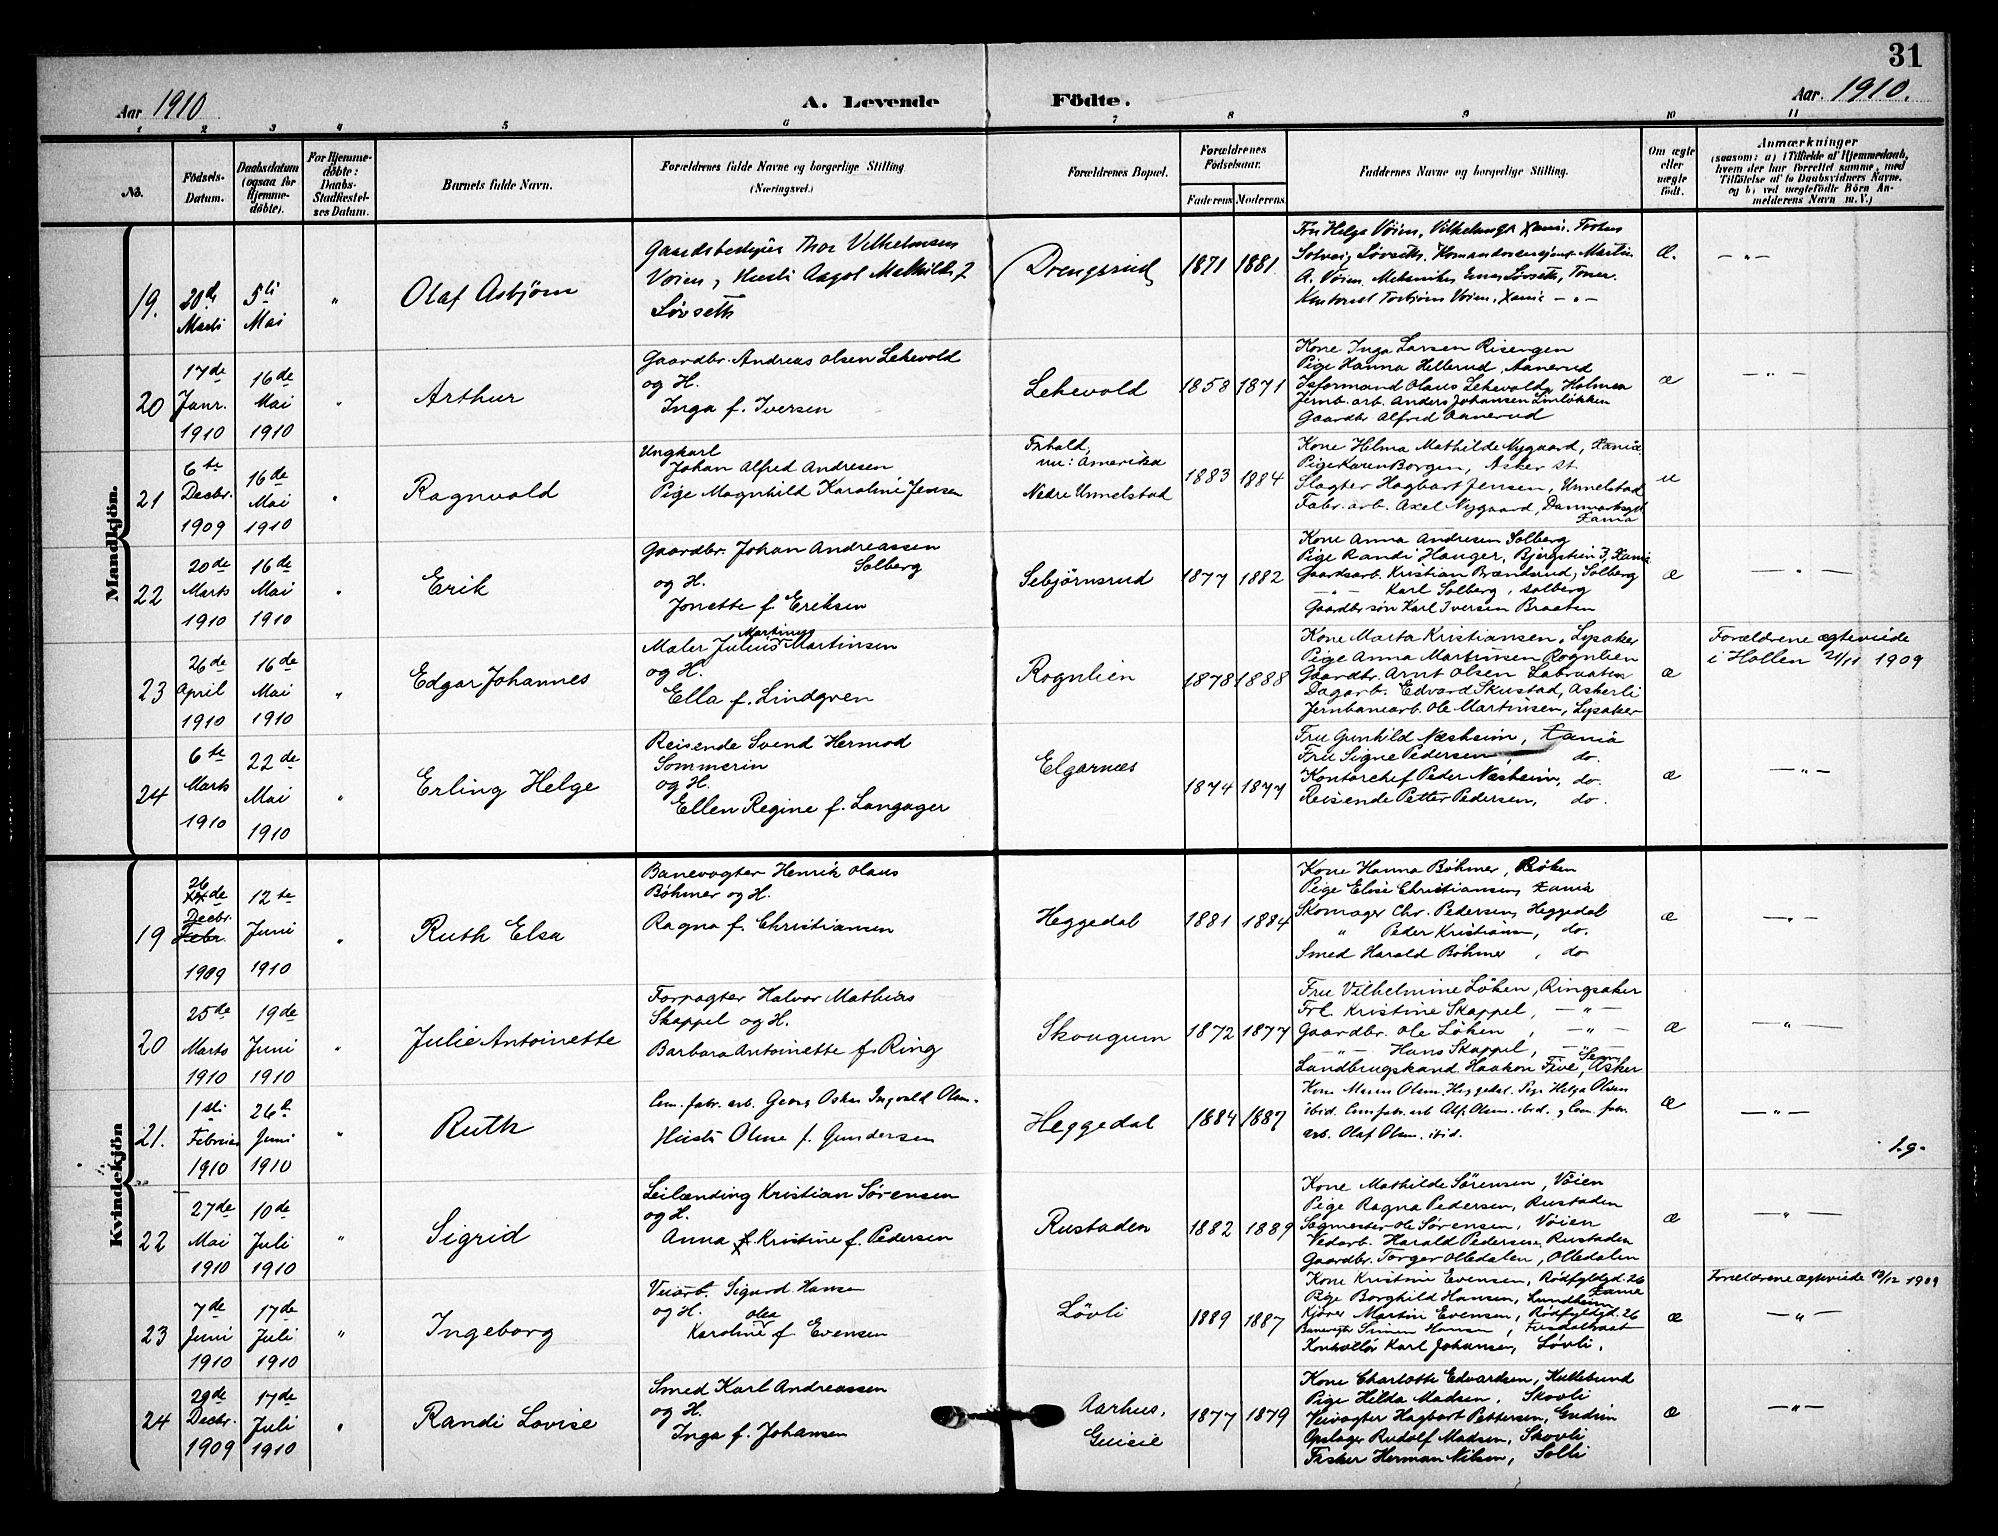 31
Aar 1910
A. Levende Födte.
Aar. 1910.
1 2 3 4 5 6 7 8 9 10 11
No.
Födsels-Datum.
Daabsdatum (ogsaa for Hjemme-döbte).
For Hjemme-döbte: Daabs-Stadfæstel-ses Datum.
Barnets fulde Navn.
Forældrenes fulde Navne og borgerlige Stilling
(Næringsvei.)
Forældrenes Bopæl.
Forældrenes Födselsaar.
Faderens Moderens
Faddernes Navne og borgerlige Stilling.
Om ægte eller uægte födt.
Anmærkninger
(saasom: a) i Tilfælde af Hjemmedaab,
hvem der har forrettet samme, med
Tilföielse af to Daabsvidners Navne.
og b) ved uægtefödte Börn An-
melderens Navn m. V.)
Mandkjön.
19. 20d Marts 5ti Mai " Olaf Asbjörn
Gaardsbestyrer Thor Vilhelmsen
Voien, Hustr Aagot Mathilde f
Lövseth
Drengsrud 1871 1881
Fru Helga Vöien,
Solveig Lövseth,
A. Voien
Kontorist Torbjörn Voien, Xania — " —
Æ. — " —
20 17de Janr. 1910 16de Mai 1910 " Arthur
Gaardbr. Andreas Olsen Lekevold
og H.
Inga f. Iversen
Lekevold 1858 1871
Kone Inga Larsen Risengen
Pige Hanna Hellerud, Aanerud
Isformand Olaus Lekevold, Holmen
Jernb. arb. Anders Johansen Linløkken
Gaardbr Alfred Aanerud
æ — " —
21 6te Decbr. 1909 16de Mai 1910 " Ragnvald
Ungkarl
Johan Alfred Andresen
Pige Magnhild Karoline Jensen
nu: Amerika
Nedre Unnelstad 1883 1884
Kone Helma Mathilde Nygaard, Xania
Pige Karen Borgen, Asker st
Slagter Hagbart Jensen, Unnelstad
Fabr. arb. Axel Nygaard, Danmarksgt
Xania
u
22 20de Marts 1910 16de Mai 1910 " Erik
Gaardbr. Johan Andreassen
Solberg
og H.
Jonette f. Eriksen
Sebjørnsrud 1877 1882
Kone Anna Andresen Solberg
Pige Randi Hauger, Bjergstien 3, Xania
Gaardsarb. Kristian Brændsrud, Solberg
— " — Karl Solberg, Solberg
Gaardbr søn Karl Iversen Braaten
æ — " —
23 26de April 1910 16de Mai 1910 " Edgar Johannes
Maler Julius Martinus Martinsen
og H.
Ella f. Lindgren
Rognlien 1878 1888
Kone Marta Kristiansen, Lysaker
Pige Anna Martinsen Rognlien
Gaardbr. Arnt Olsen Labraaten
Dagarb. Edvard Skustad, Askerli
Jernbanearb. Ole Martinsen, Lysaker
æ
Forældrene ægteviede
i Hollen 21/11 1909
24 6te Marts 1910 22de Mai 1910 " Erling Helge
Reisende Svend Hermod
Sommerin
og H.
Ellen Regine f. Langager
Elgarnæs 1874 1877
Fru Gunhild Næsheim, Xania
Fru Signe Pedersen, do.
Kontorchef Peder Næsheim, do.
Reisende Petter Pedersen, do.
æ — " —
Kvindekjön
19 26 de Decbr. Febr. 1909 12te Juni 1910 " Ruth Elsa
Banevogter Henrik Olaus
Böhmer og H.
Ragna f. Christiansen
Heggedal 1881 1884
Kone Hanna Böhmer, Röken
Pige Elise Christiansen, Xania
Skomager Chr. Pedersen, Heggedal
" Peder Kristiansen, do.
Smed Harald Böhmer, do
æ — " —
20 25de Marts 1910 19de Juni 1910 " Julie Antoinette
Forpagter Halvor Mathias
Skappel og H.
Barbara Antoinette f. Ring
Skougum 1872 1877
Fru Vilhelmine Löken, Ringsaker
Frk. Kristine Skappel, — " —
Gaardbr. Ole Löken, — " —
— " — Hans Skappel, — " —
Landbrugskand. Haakon Five, Sem, Asker
æ — " —
21. 1ste Februar 1910 26de Juni 1910 " Ruth
Cem. fabr. arb. Georg Oskar Ingvald Olsen
Hustr Oline f. Gundersen
Heggedal 1884 1887
Kone Maren Olsen. Heggedal. Pige Helga Olsen
ibid. Cem fabr arb Alf. Olsen. ibid. og Cem. fabr
arb. Olaf Olsen. ibid.
æ — " —
f.g.
22 27de Mai 1910 10de Juli 1910 " Sigrid
Leilænding Kristian Sørensen
og H.
Anna Kristine f. Pedersen
Rustaden 1882 1889
Kone Mathilde Sørensen, Vöien
Pige Ragna Pedersen, Rustaden
Sagmester Ole Sørensen, Vöien
Vedarb. Harald Pedersen, Rustaden
Gaardbr. Torger Olledalen, Olledalen
æ — " —
23 7de Juni 1910 17de Juli 1910 " Ingeborg
Veiarb. Sigurd Hansen
og H.
Karoline Olea f. Evensen
Lövli 1889 1887
Kone Kristine Evensen, Rødfyldgd. 26
Xania
Pige Borghild Hansen, Lundheim
Kjører Martin Evensen, Rødfyldgt. 26
Banevogter Simen Hansen,
Karl Johansen, Løvli.
æ
Forældrene ægteviede 19/12 1909
"
24 29de Decbr. 1909 17de Juli 1910 " Randi Lovise
Smed Karl Andreassen
og H.
Inga f. Johansen
Aarhus,
Guisie 1877 1879
Kone Charlotte Edvardsen, Kullebund
Pige Hilda Madsen, Skovli
Veivogter Hagbart Pettersen, Gudrim
Opslager Rudolf Madsen, Skovli
Fisker Herman Nilsen, Solli
æ — " —